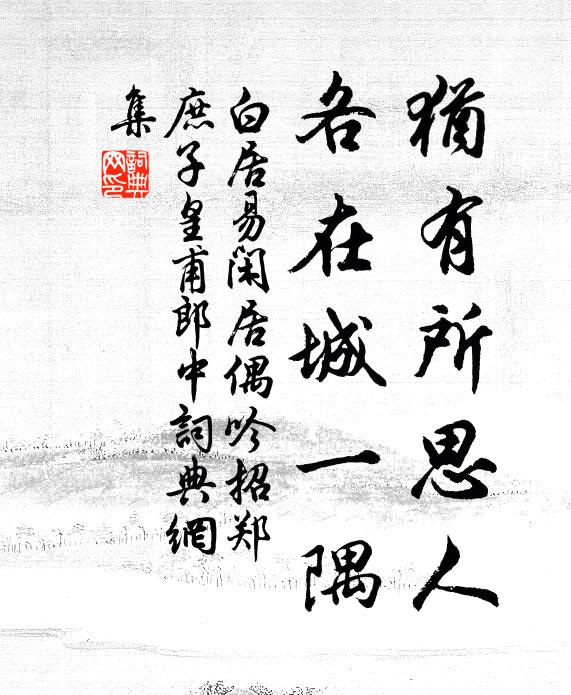 猶有所思人
各在城一隅
白居易閑居偶吟招郑
庶子皇甫郎中詞典網
集
詞典
网印